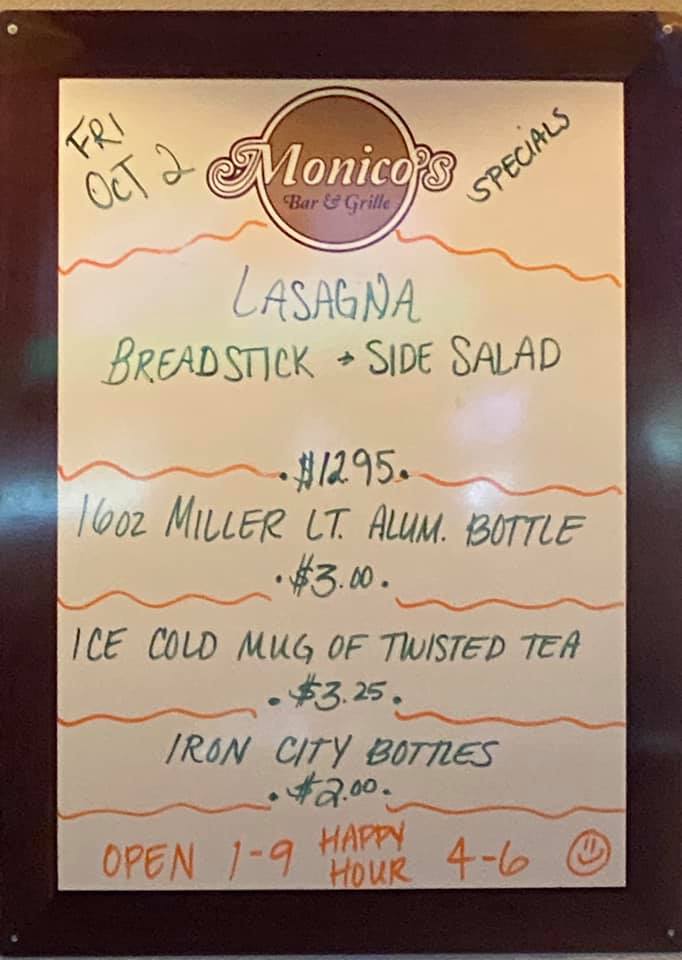 FRI
OCT 2
Monico's
Bar & Grille
SPECIALS
LASAGNA
BREADSTICK + SIDE SALAD
$12.95
16oz MILLER LT. ALUM. BOTTLE
$3.00
ICE COLD MUG OF TWISTED TEA
$3.25
IRON CITY BOTTLES
$2.00
OPEN 1-9 HAPPY HOUR 4-6